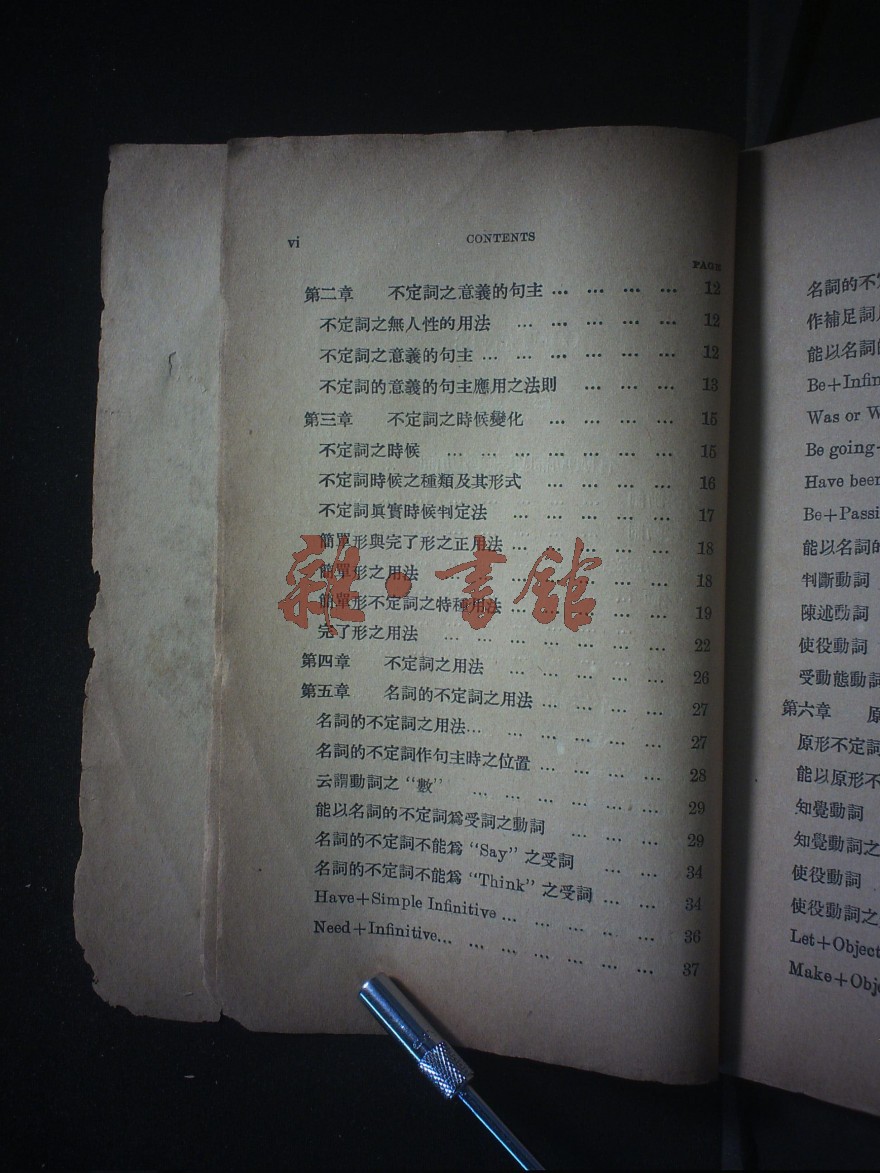 vi CONTENTS
PAGE
第二章 不定詞之意義的句主 ... ... ... ... 12
不定詞之無人性的用法 ... ... ... ... ... 12
不定詞之意義的句主 ... ... ... ... ... ... 12
不定詞的意義的句主應用之法則 ... ... ... 13
第三章 不定詞之時候變化 ... ... ... ... 15
不定詞之時候 ... ... ... ... ... ... ... 15
不定詞時候之種類及其形式 ... ... ... ... 16
不定詞眞實時候判定法 ... ... ... ... ... 17
簡單形與完了形之正用法 ... ... ... ... ... 18
簡單形之用法 ... ... ... ... ... ... ... 18
簡單形不定詞之特種用法 ... ... ... ... ... 19
完了形之用法 ... ... ... ... ... ... ... 22
第四章 不定詞之用法 ... ... ... ... ... 26
第五章 名詞的不定詞之用法 ... ... ... ... 27
名詞的不定詞之用法... ... ... ... ... ... 27
名詞的不定詞作句主時之位置 ... ... ... ... 28
云謂動詞之 “數” ... ... ... ... ... ... 29
能以名詞的不定詞爲受詞之動詞 ... ... ... 29
名詞的不定詞不能爲 “Say” 之受詞 ... ... 34
名詞的不定詞不能爲 “Think” 之受詞 ... ... 34
Have+Simple Infinitive ... ... ... ... ... 36
Need+Infinitive... ... ... ... ... ... ... 37
雜·書館
名詞的不
作補足詞
能以名詞
Be+Infin
Was or W
Be going
Have been
Be+Passi
能以名詞的
判斷動詞
陳述動詞
使役動詞
受動態動詞
第六章 原
原形不定詞
能以原形不
知覺動詞
知覺動詞之
使役動詞
使役動詞之
Let+Object
Make+Obj